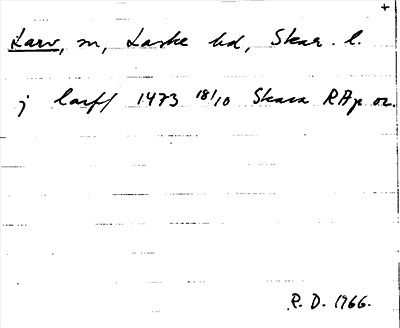 +
Larv, sn, Laske hd, Skar. l.
j larff 1473 18/10 Skara RAp or.
R. D. 1966.